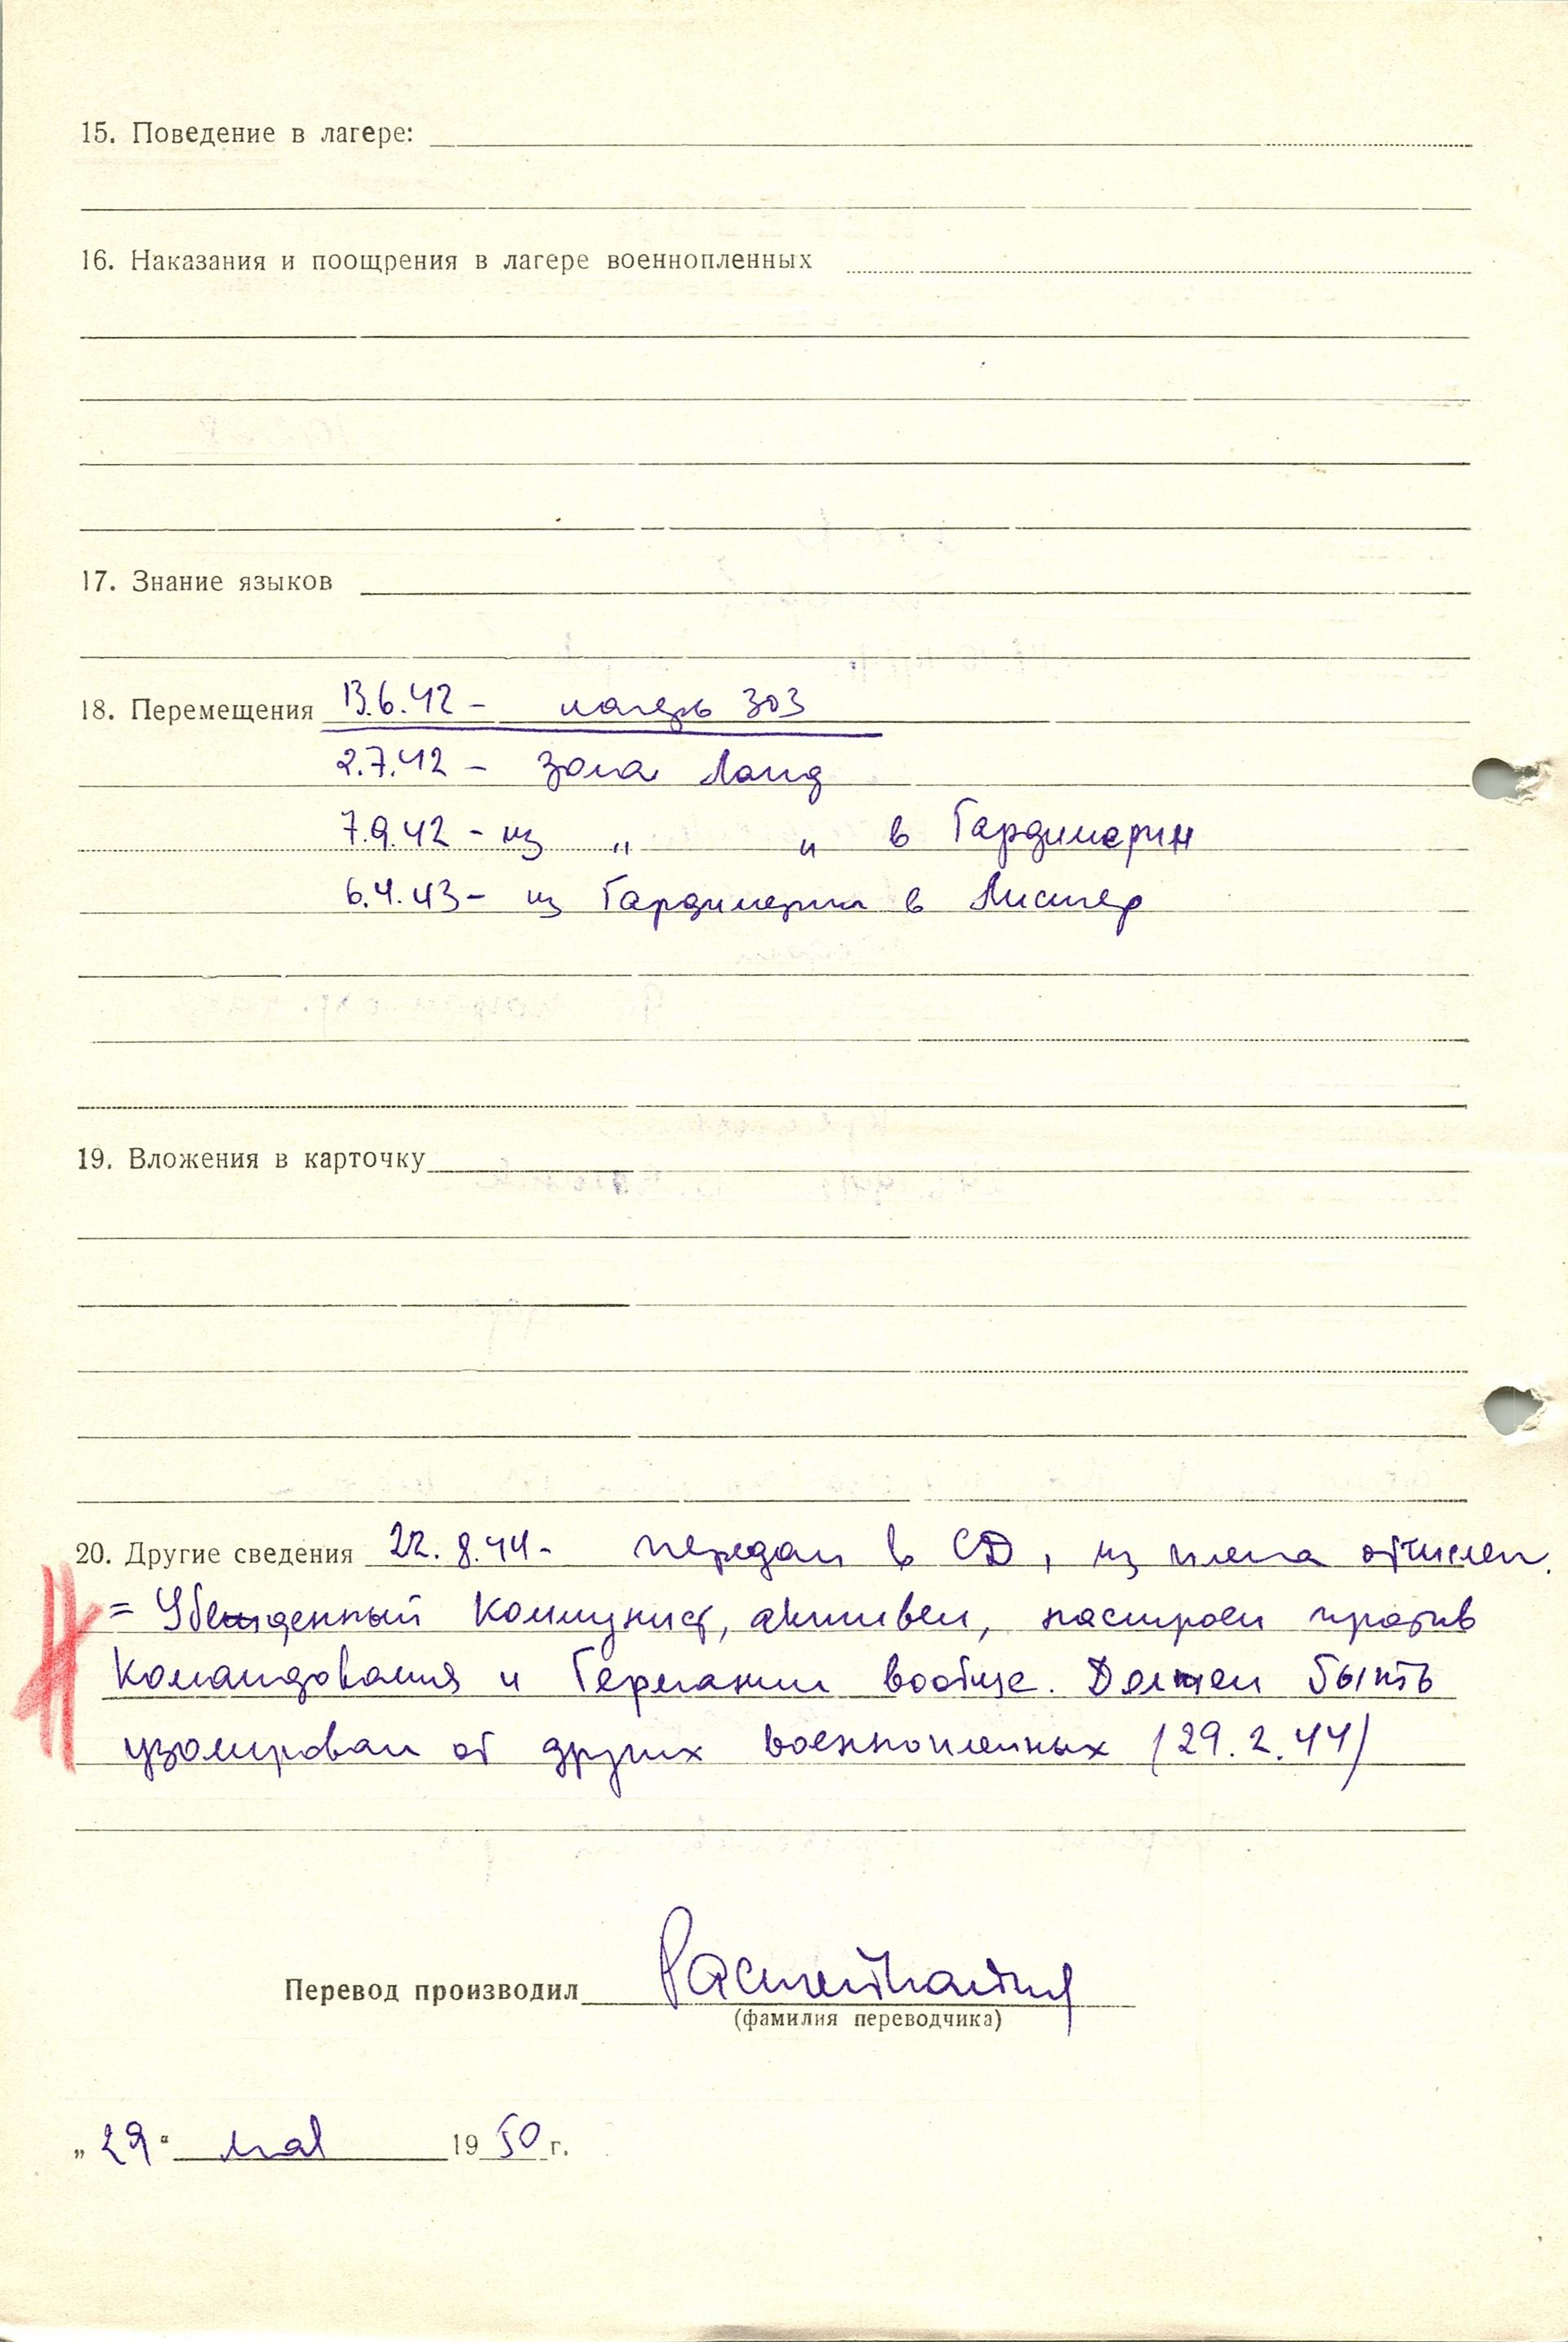 15. Поведение в лагере:
16. Наказания и поощрения в лагере военнопленных
17. Знание языков
18. Перемещения 13.6.42 - лагерь 303
2.7.42 - зона Ланд
7.9.42 - из " " в Гардимерин
6.4.43 - из Гардимерин в Листер
19. Вложения в карточку
20. Другие сведения 22.8.44 - передан в СД, из плена отчислен.
= Убежденный коммунист, активен, настроен против
командования и Германии вообще. Должен быть
изолирован от других военнопленных (29.2.44)
Перевод производил
(фамилия переводчика)
„29“ мая 1950 г.